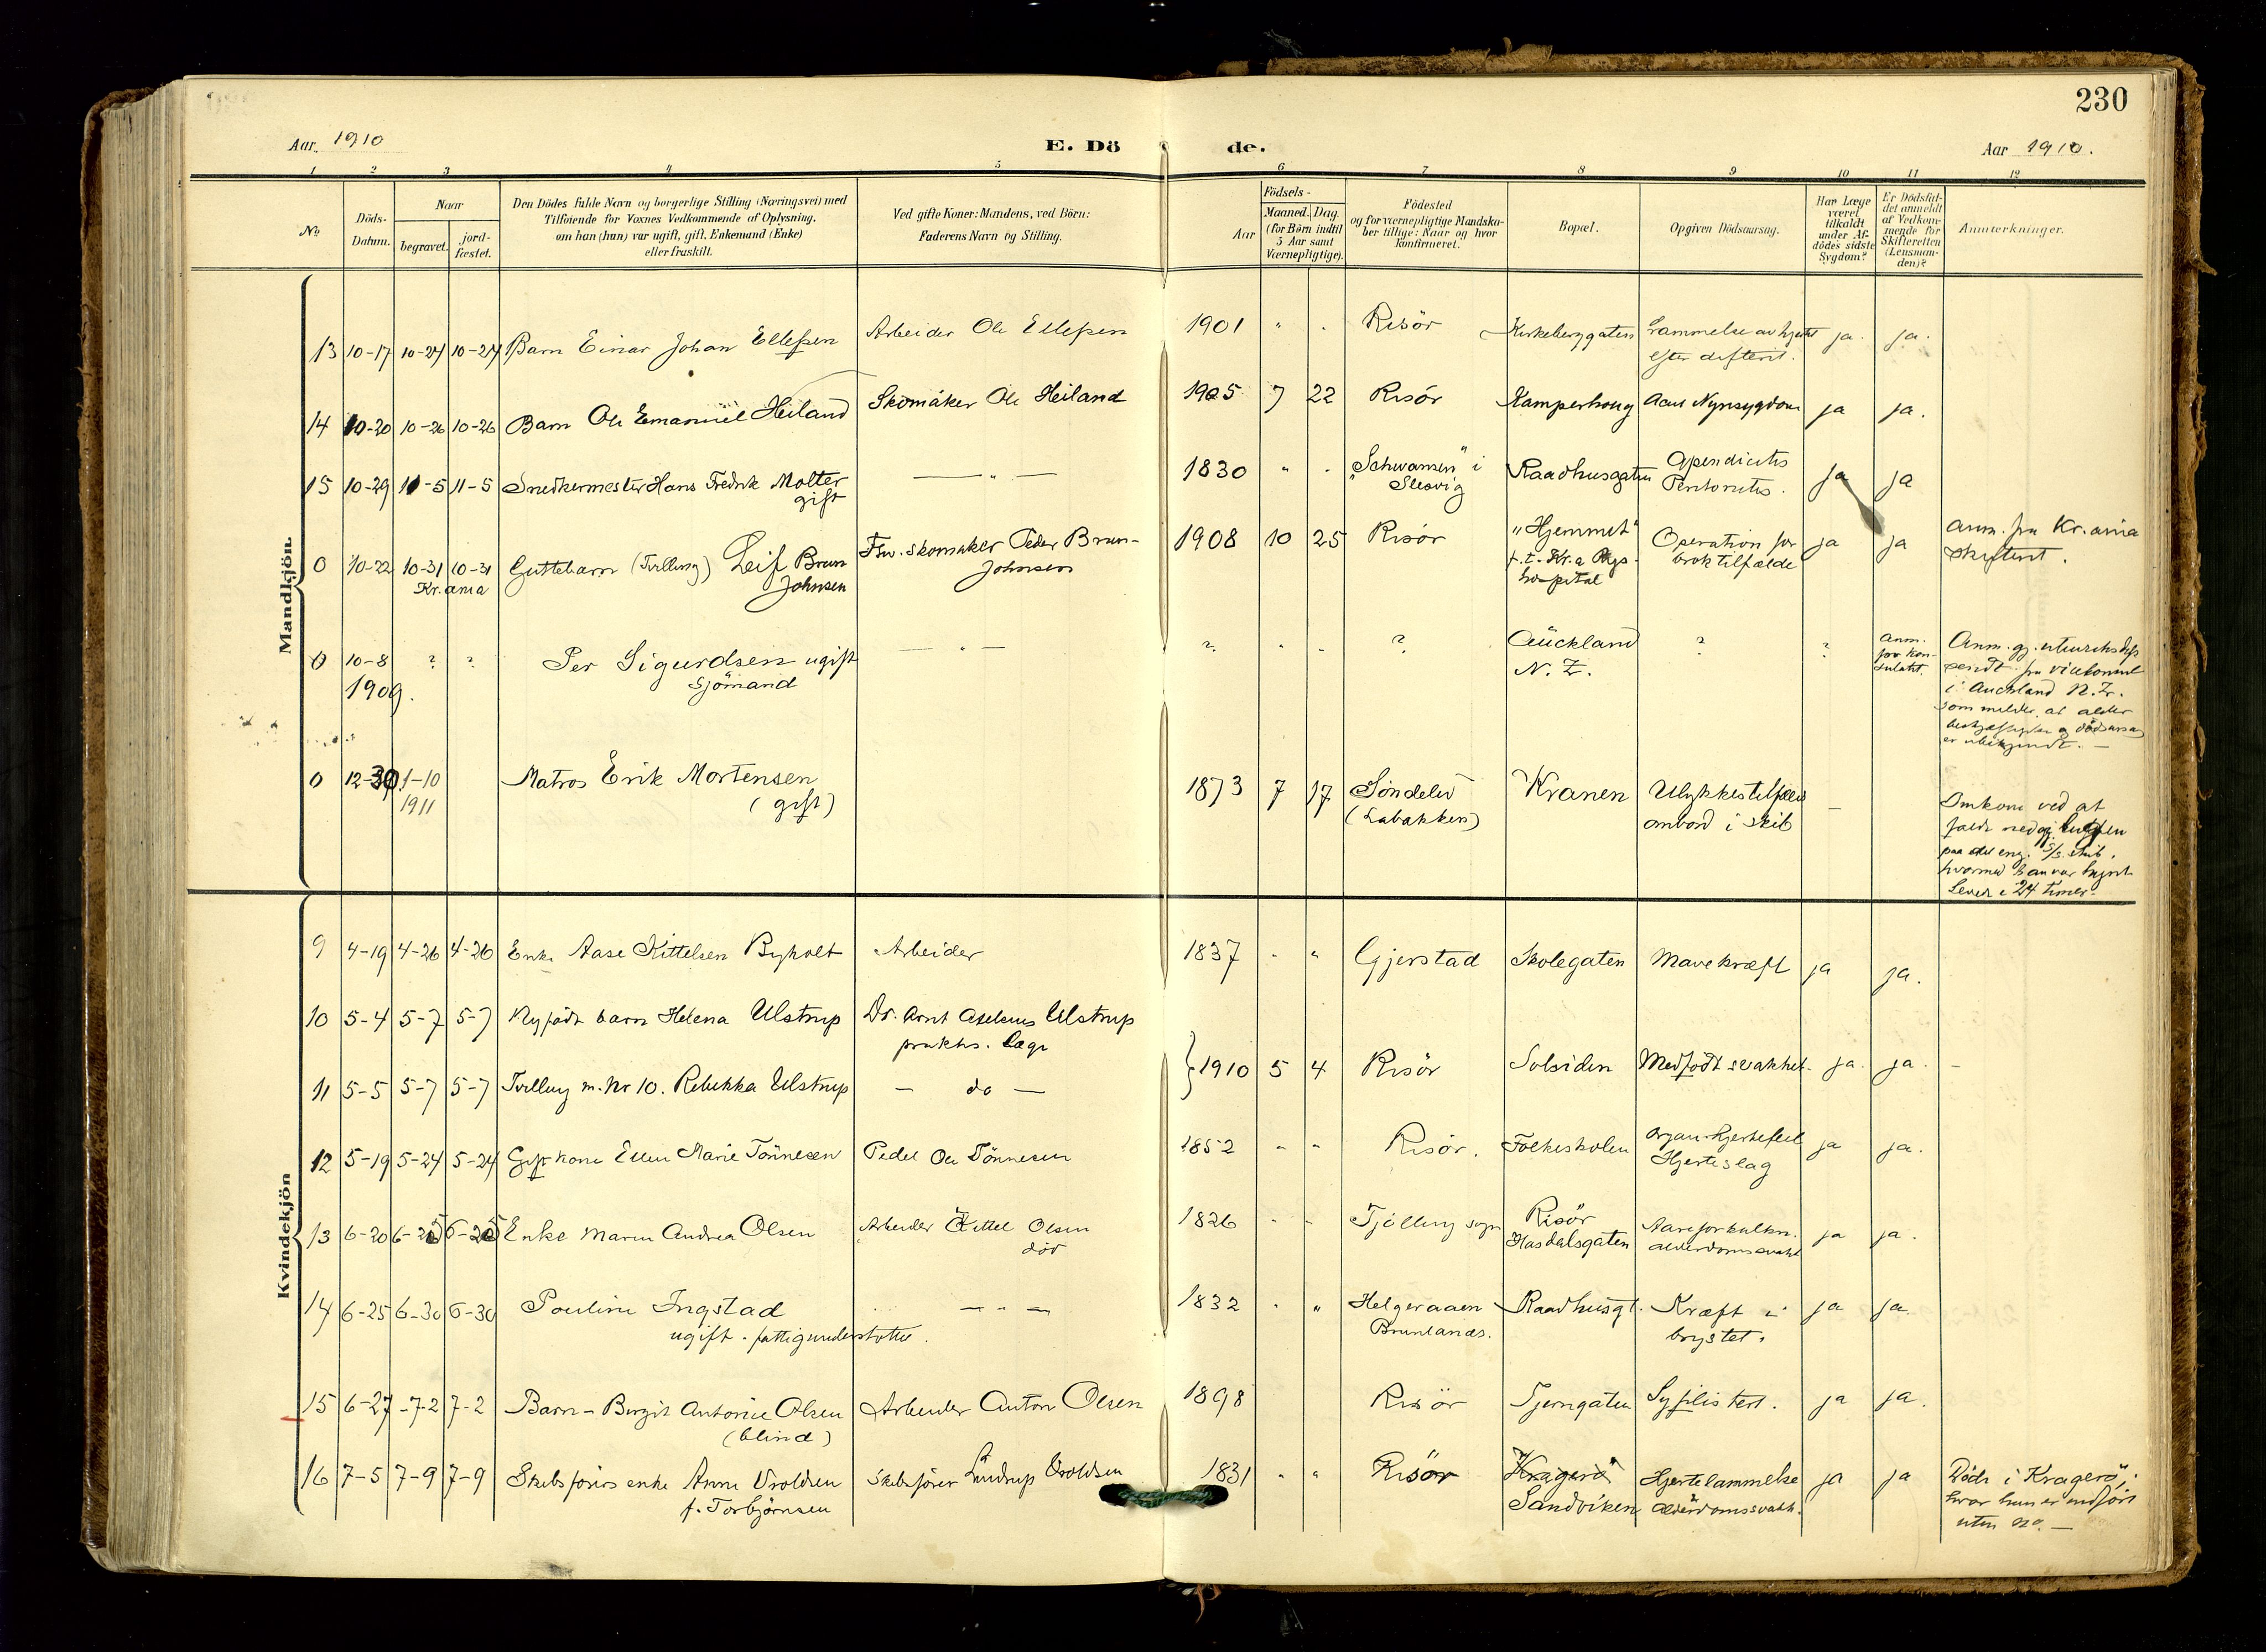 230
Aar. 1910
E. Dö de.
Aar 1910.
1 2 3 4 5 6 7 8 9 10 11 12
No.
Döds-Datum.
Naar
begravet.
jord-fæstet.
Den Dödes fulde Navn og borgerlige Stilling (Næringsvei) med
Tilföiende for Voxnes Vedkommende af Oplysning,
om han (hun) var ugift, gift, Enkemand (Enke)
eller fraskilt.
Ved gifte Koner: Mandens, ved Börn:
Faderens Navn og Stilling.
Födsels-
Aar
Maaned. Dag.
(for Börn indtil
5 Aar samt
Værnepligtige).
Födested
og for værnepligtige Mandska-
ber tillige: Naar og hvor
konfirmeret.
Bopæl.
Opgiven Dödsaarsag.
Har Læge
været
tilkaldt
under Af-
dödes sidste
Sygdom?
Er Dödsfal-
det anmeldt
af Vedkom-
mende for
Skifteretten
(Lensman-
den)?
Anmærkninger.
Mandkjön.
13 10-17 10-24 10-24 Barn Einar Johan Ellefsen Arbeider Ole Ellefsen 1901 " . Risör Kirkeberggaten Lammelse av hjertet
efter difterit. ja. ja.
14 10-20 10-26 10-26 Barn Ole Emanuel Heiland Skomaker Ole Heiland 1905 7 22 Risör Kamperhoug Acut Nyresygdom ja ja.
15 10-29 11-5 11-5 Snedkermester Hans Fredrik Molter
gift
— " — 1830 " . "Schwansen" i
Slesvig
Raadhusgaten Apendicitis
Peritonitis. ja ja
0 10-22 10-31 10-31 Guttebarn (Tvilling) Leif Brun
Kr.ania Johnsen
Fhv. skomaker Peder Brun-
Johnsen
1908 10 25 Risör "Hjemmet"
p.t. Kr.a Rigs-
hospital
Operation for
brok tilfælde
ja ja anm. fra Kr.ania
skifteret.
0 10-8 ? ? Per Sigurdsen ugift
1909. Sjömand
— " — ? " . ? Auckland
N. Z.
? ? Anm.
for kon-
sulatet.
Anm. gj.
sendt fra vicekonsul
i Auckland N. Z.
som melder, at alder
er ubekjendt. —
0 12-30 1-10 Matros Erik Mortensen
1911 (gift)
1873 7 17 Söndeled
(Labakken)
Kranen Ulykkestilfælde
ombord i skib
—
Omkom ved at
falde ned gj. lugen
paa det eng. S/S. skib,
hvormed han var hyret.
Levede i 24 timer.
Kvindekjön
9 4-19 4-26 4-26 Enke Aase Kittelsen Byholt Arbeider 1837 " " Gjerstad Skolegaten Mavekræft ja ja.
10 5-4 5-7 5-7 Nyfödt barn Helena Ulstrup Dr. Arnt Ulstrup
praktis. læge
11 5-5 5-7 5-7 Tvilling m. Nr 10. Rebekka Ulstrup — do — } 1910 5 4 Risör Solsiden Medfödt svakhet. ja. ja. -
12 5-19 5-24 5-24 Gift kone Ellen Marie Tönnesen Pedel Ole Tönnesen 1852 " " Risör. Folkeskolen Organ. hjertefeil
Hjerteslag ja ja.
13 6-20 6-25 6-25 Enke Maren Andrea Olsen Arbeider Kittel Olsen
död
1826 " " Tjölling sogn Risör
Hasdalsgaten
Aareforkalkn.
alderdomssvakh. ja ja.
14 6-25 6-30 6-30 Pouline Ingstad
ugift. fattigunderstöttet.
— " — 1832 " " Helgeraaen
Brunlanæs.
Raadhusgt. Kræft i
brystet. ja ja.
15 6-27 -7-2 7-2 Barn - Birgit Antonie Olsen
(blind)
Arbeider Anton Olsen 1898 Risör Tjerngaten Syfilis tert. ja ja.
16 7-5 7-9 7-9 Skibsförers enke Anne Oroldsen
f. Torbjörnsen
Skibsförer Lindrup Oroldsen 1831 " " Risör Kragerö
Sandviken
Hjertelammelse
Alderdomssvakh. ja ja Döde i Kragerö,
hvor hun er indfört
uten no. —